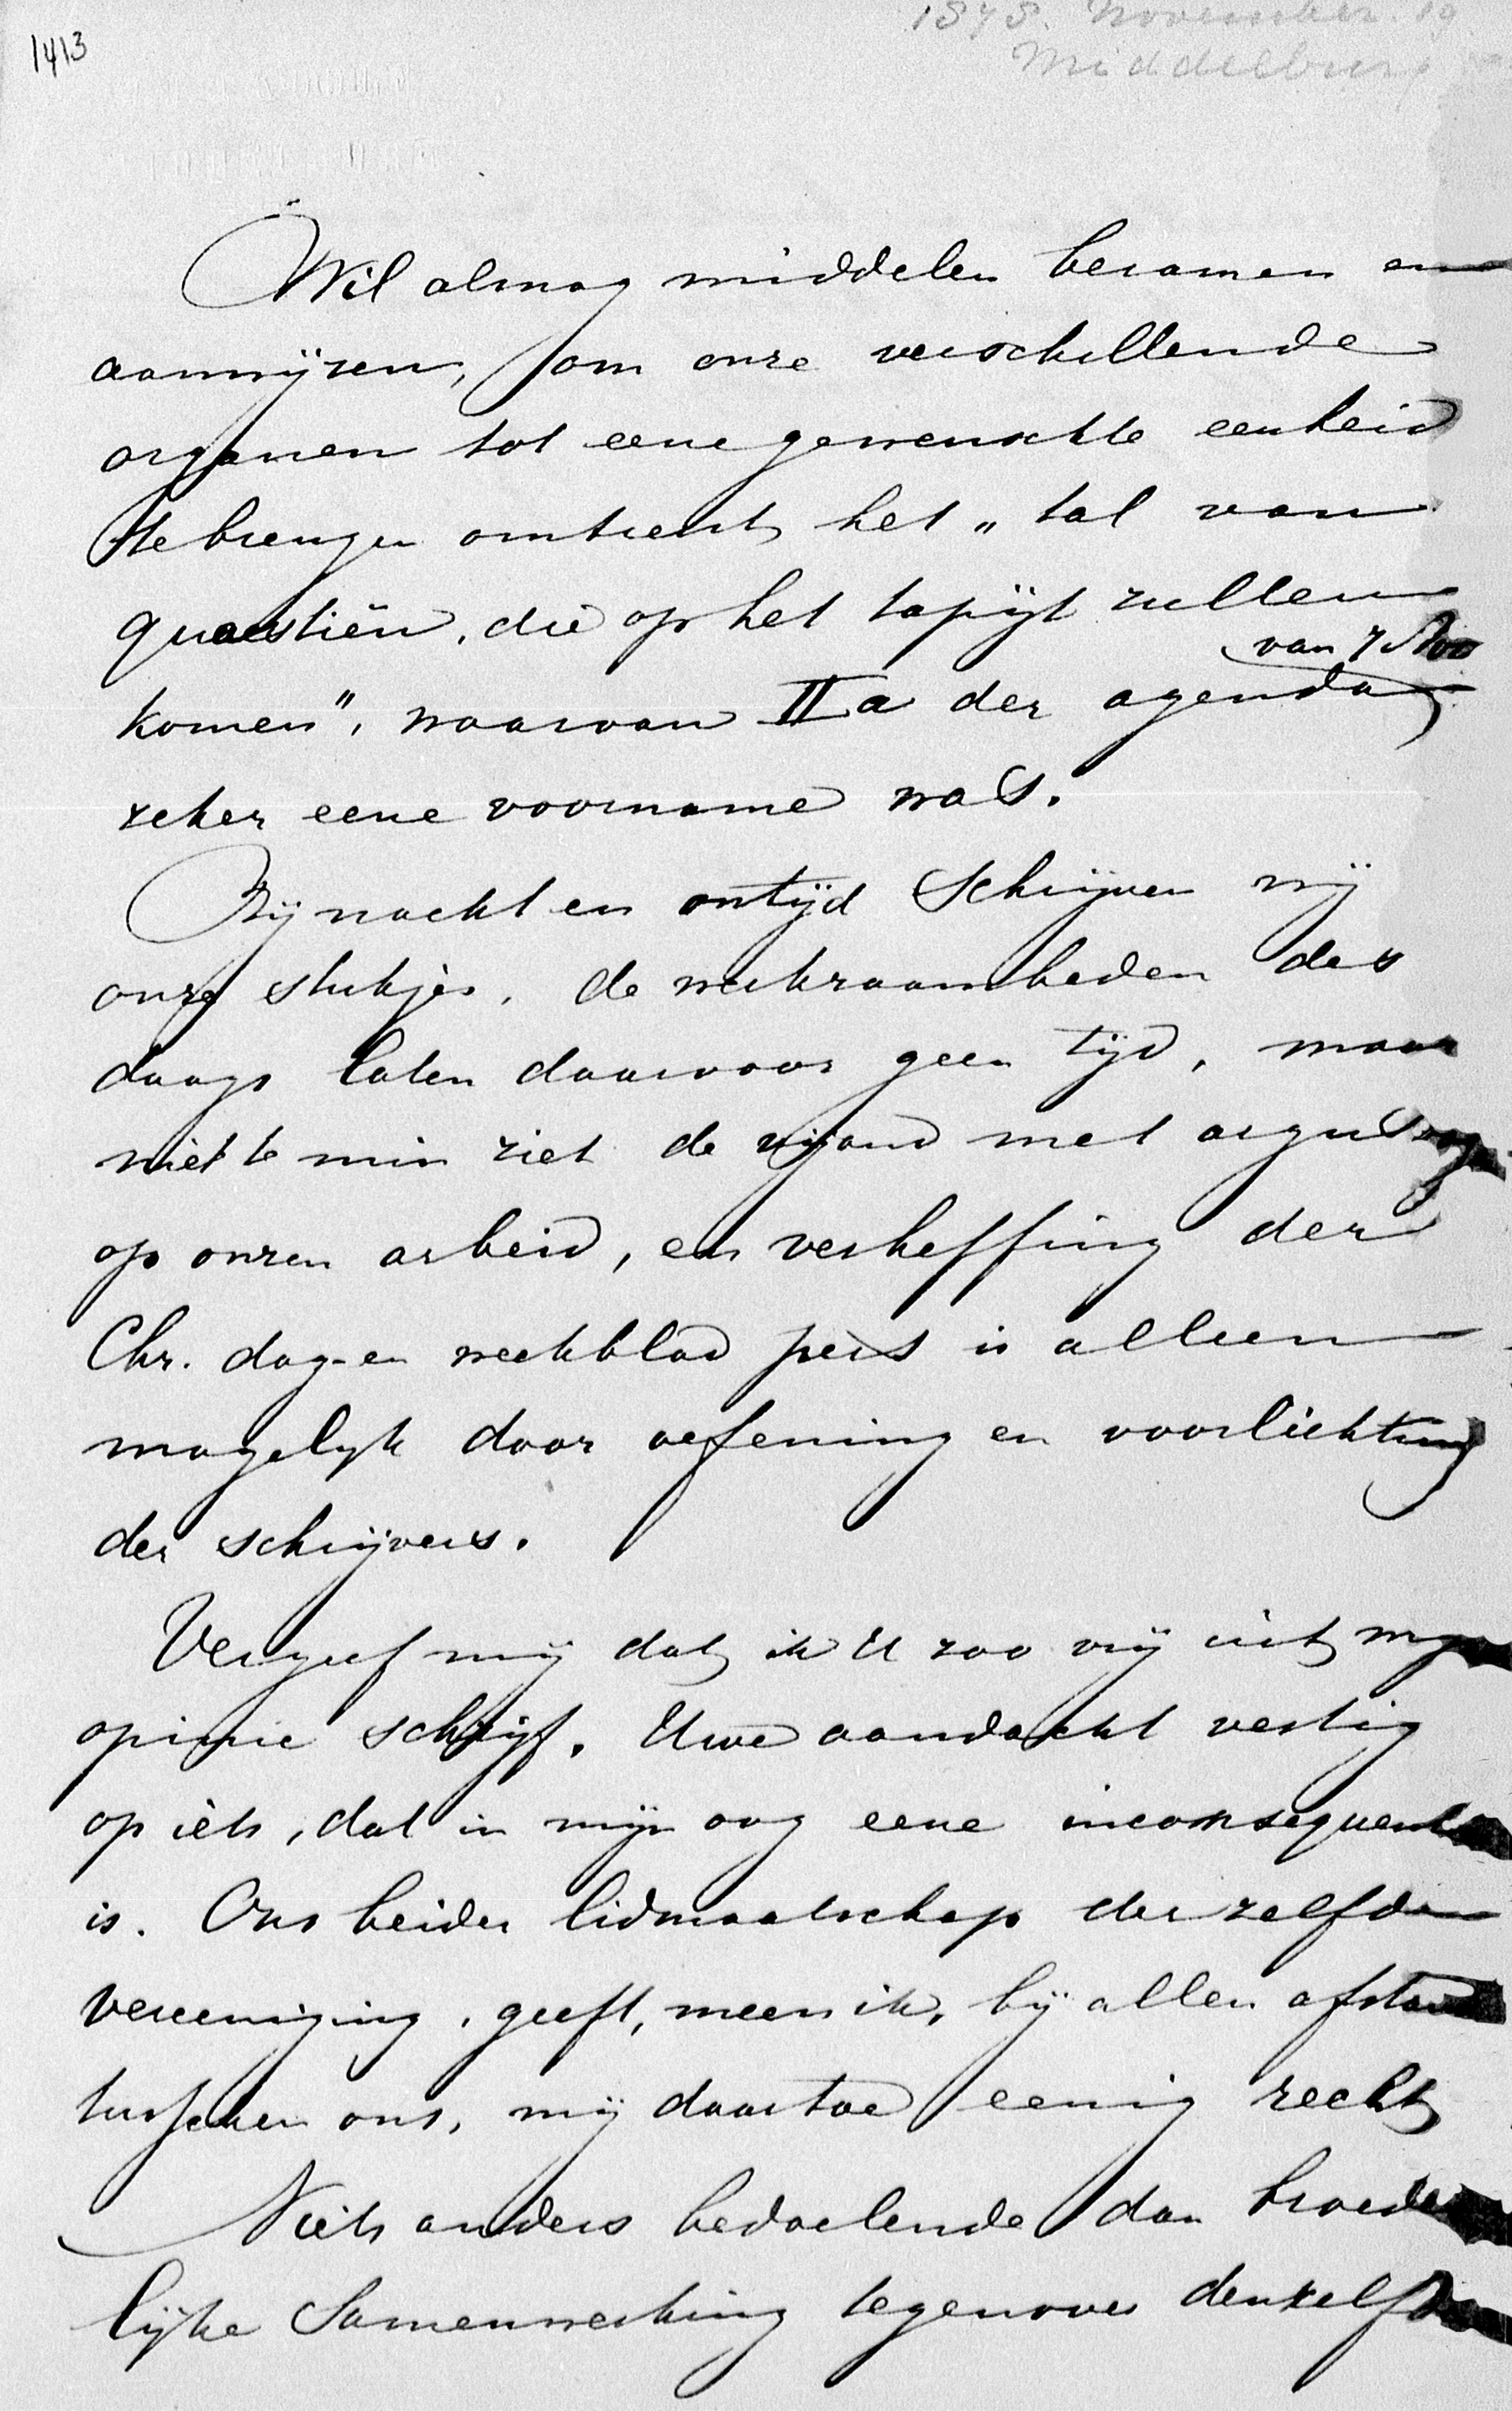 1878. November. 19
Middelburg
1413
Wil alsnog middelen beramen en
aanwijzen, om onze verschillende
organen tot eene gewenschte eenheid
te brengen omtrent het „tal van
quaestiën, die op het tapijt zullen
van 7 Nov
komen", waarvan IIa der agenda
zeker eene voorname was.
Bij nacht en ontijd schrijven wij
onze stukjes, de werkzaamheden des
daags laten daarvoor geen tijd, maar
niet te min ziet de vijand met argus
op onzen arbeid, en verheffing der
Chr. dag- en weekblad pers is alleen
mogelijk door oefening en voorlichting
der schrijvers.
Vergeef mij dat ik U zoo vrij uit
opinie schrijf. Uwe aandacht vestig
op iets, dat in mijn oog eene inconsequent
is. Ons beider lidmaatschap derzelfde
vereeniging, geeft, meen ik, bij allen afstand
tusschen ons, mij daartoe eenig recht
Niets anders bedoelende dan broeder
lijke Samenwerking tegenover denzelfden